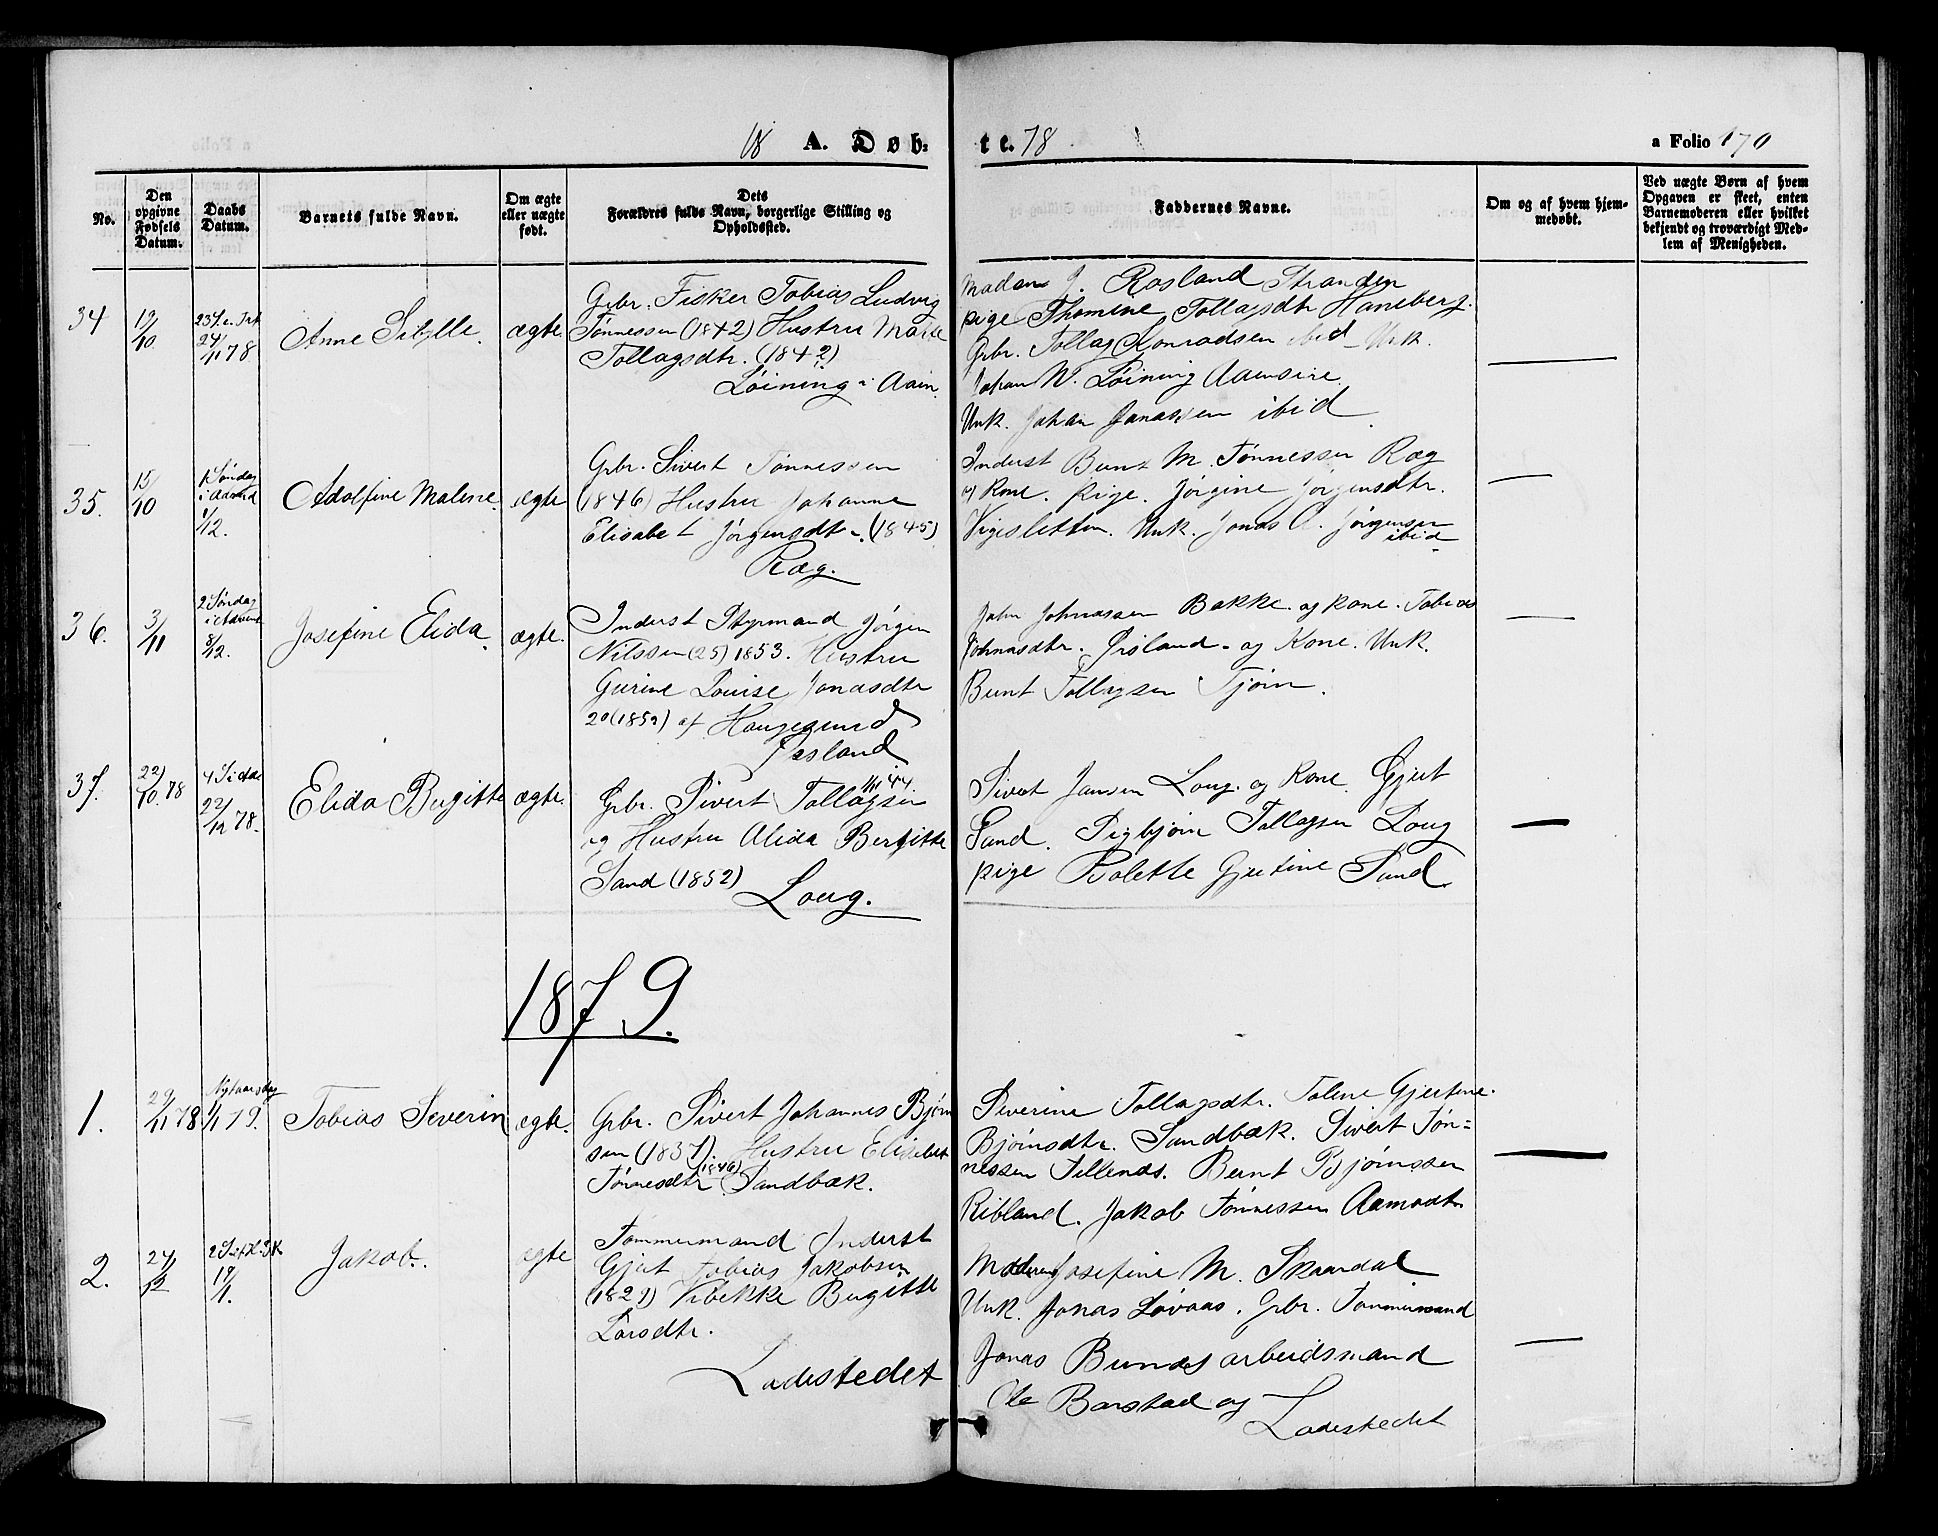 18 A. Døb-
te. 78
a Folio 170
No.
Den opgivne Fødsels Datum.
Daabs Datum.
Barnets fulde Navn.
Om ægte eller uægte født.
Dets Forældres fulde Navn, borgerlige Stilling og Opholdssted.
Faddernes Navne.
Om og af hvem hjemmedøbt.
Ved uægte Børn af hvem Opgaven er skeet, enten Barnemoderen eller hvilket bekjendt og troværdigt Medlem af Menigheden.
34
24/11 78
Anne Sibylle.
ægte
Grbr. Fisker Tobias Ludvig
Tønnessen (1842) Hustru Marie
Tollagsdtr. (1842)
Løining i Aain.
Madam J. Rosland Stranden
pige Thomine Tollagsdtr Haneberg.
Grbr. Tollag Konradsen ibid Unk.
Johan W. Løining Aaensire.
Unk. Johan Jonassen ibid
35.
15/10
1 Søndag
i Advend
1/12.
Adolfine Malene.
ægte
Grbr. Sivert Tønnessen
(1846) Hustru Johanne
Elisabet Jørgensdtr. (1845)
Ræg.
Inderst Bernt M. Tønnessen Ræg
og Kone. Pige. Jørgine Jørgensdtr.
Vigesletten. Unk. Jonas A. Jørgensen
ibid
36.
3/11
2 Søndag
i Advent
8/12.
Josefine Elida.
ægte.
Inderst Styrmand Jørgen
Nilssen (25) 1853. Hustru
Gurine Louise Jonasdtr
af Haugesund
John Johnassen Bakke og Kone. Tobias
Johnasdtr. Øisland. og Kone. Unk.
Bernt Tollagsen Tjørn.
37.
22/10 78
22/12 78.
Elida Birgitte
ægte.
Grbr. Sivert Tollagsen 44.
og Hustru Alida Bergitte
Sand (1852)
Loug.
Sivert Jansen Loug. og Kone. Gjert
Sand. Sigbjørn Tollagsen Loug
pige Bolette Gjertine Sand
1879.
1.
29/11 78
Nytaarsdag
1/1 79.
Tobias Severin
ægte.
Grbr. Sivert Johannes Bjørn
sen (1837). Hustru Elisabet
Tønnesdtr (1846) Sandbæk.
Severine Tollagsdtr. Talene Gjertine.
Bjørnsdtr. Sandbæk. Sivert Tøn=
nessen Tellenæs. Bernt Bjørnssen
Ribland. Jakob Tønnessen Aamodt
2.
19/1.
Jakob.
ægte
Tømmermand Inderst
Gjert Tobias Jakobsen
Vibekke Birgitte
Larsdtr.
Ladestedet
Josefine M. Skaardal
Unk. Jonas Løvaas. Grbr. Tømmermand
Jonas arbeidsmand
Ole Barstad og
Ladestedet